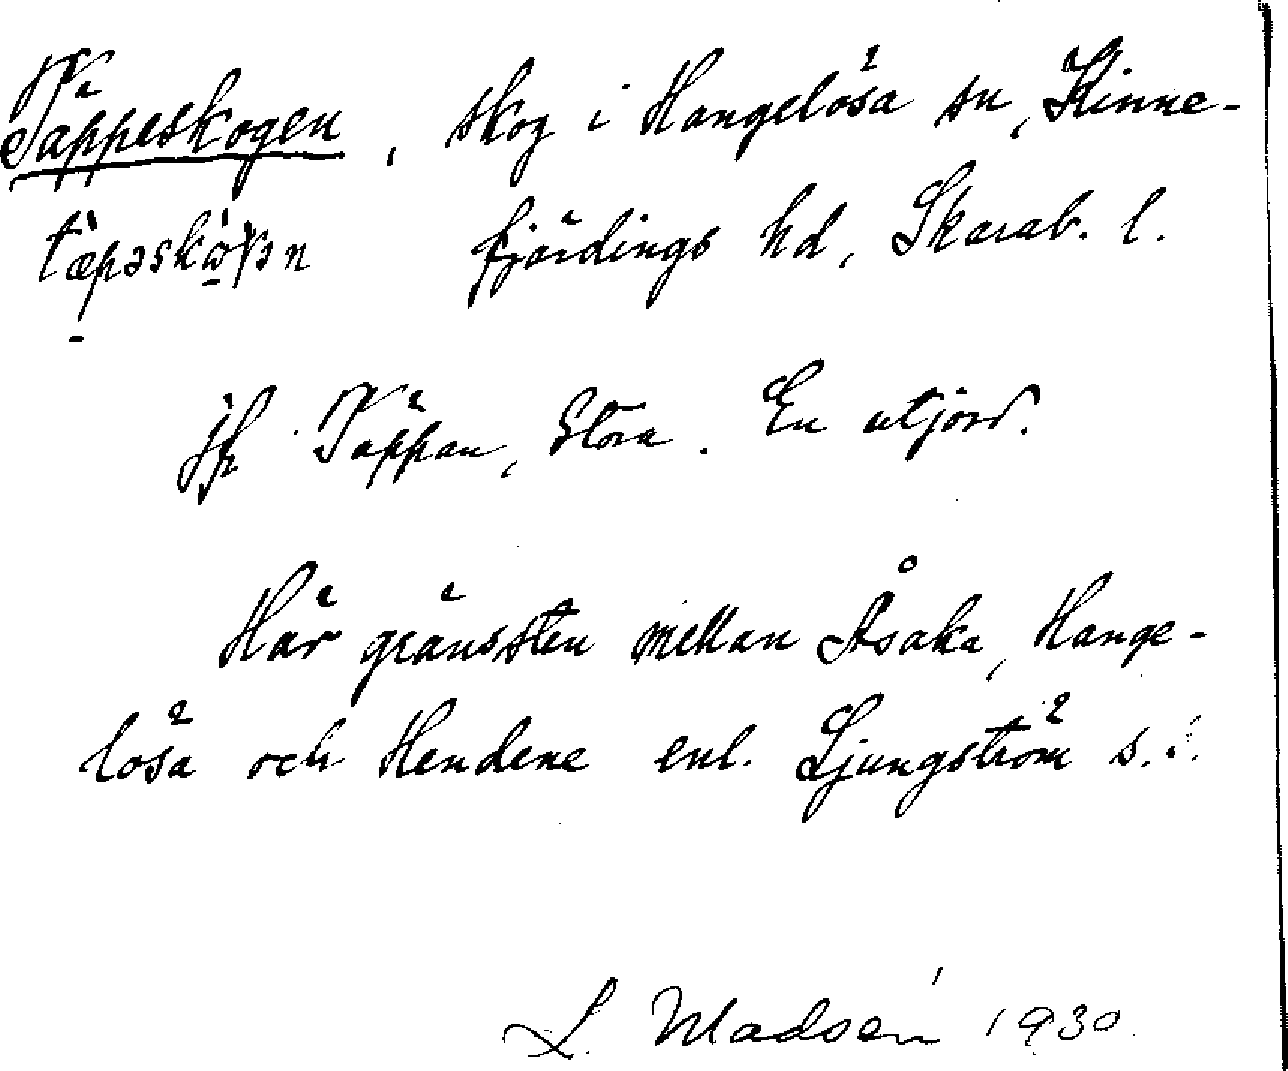 Täppeskogen, skog i Hangelösa sn, Kinne-
fjärdings hd, Skarab. l.
jfr Täppan, Stora. En utjord.
Här gränssten mellan Åsaka, Hange-
lösa och Hendene enl. Ljungström s.
L. Madsén 1930